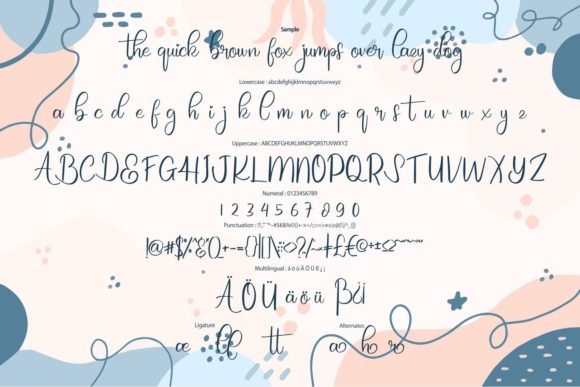 Sample
the quick brown fox jumps over lazy dog
Lowercase : abcdefghijklmnopqrstuvwxyz
a b c d e f g h i j k l m n o p q r s t u v w x y z
Uppercase : ABCDEFGHIJKLMNOPQRSTUVWXYZ
ABCDEFGHIJKLMNOPQRSTUVWXYZ
Numeral : 0123456789
1 2 3 4 5 6 7 8 9 0
Punctuation :
Multilingual : ä ö ü Ä Ö Ü ß ¿ ¡
Ä Ö Ü ä ö ü ß ¿ ¡
Ligature Alternates
æ tt